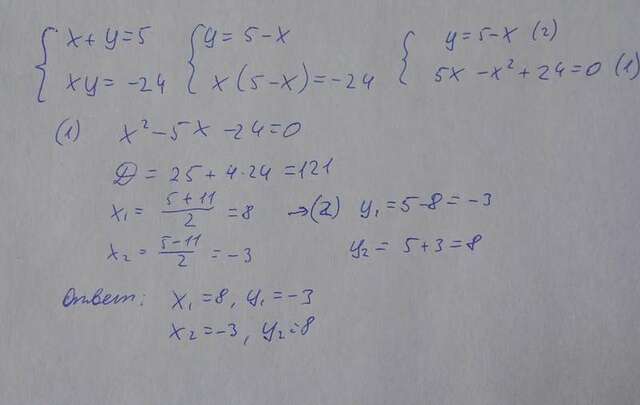 { x + y = 5 { y = 5 - x { y = 5 - x (2)
xy = -24 x(5 - x) = -24 5x - x² + 24 = 0 (1)
(1) x² - 5x - 24 = 0
D = 25 + 4·24 = 121
x₁ = (5 + 11)/2 = 8 → (2) y₁ = 5 - 8 = -3
x₂ = (5 - 11)/2 = -3 y₂ = 5 + 3 = 8
Ответ: x₁ = 8, y₁ = -3
x₂ = -3, y₂ = 8